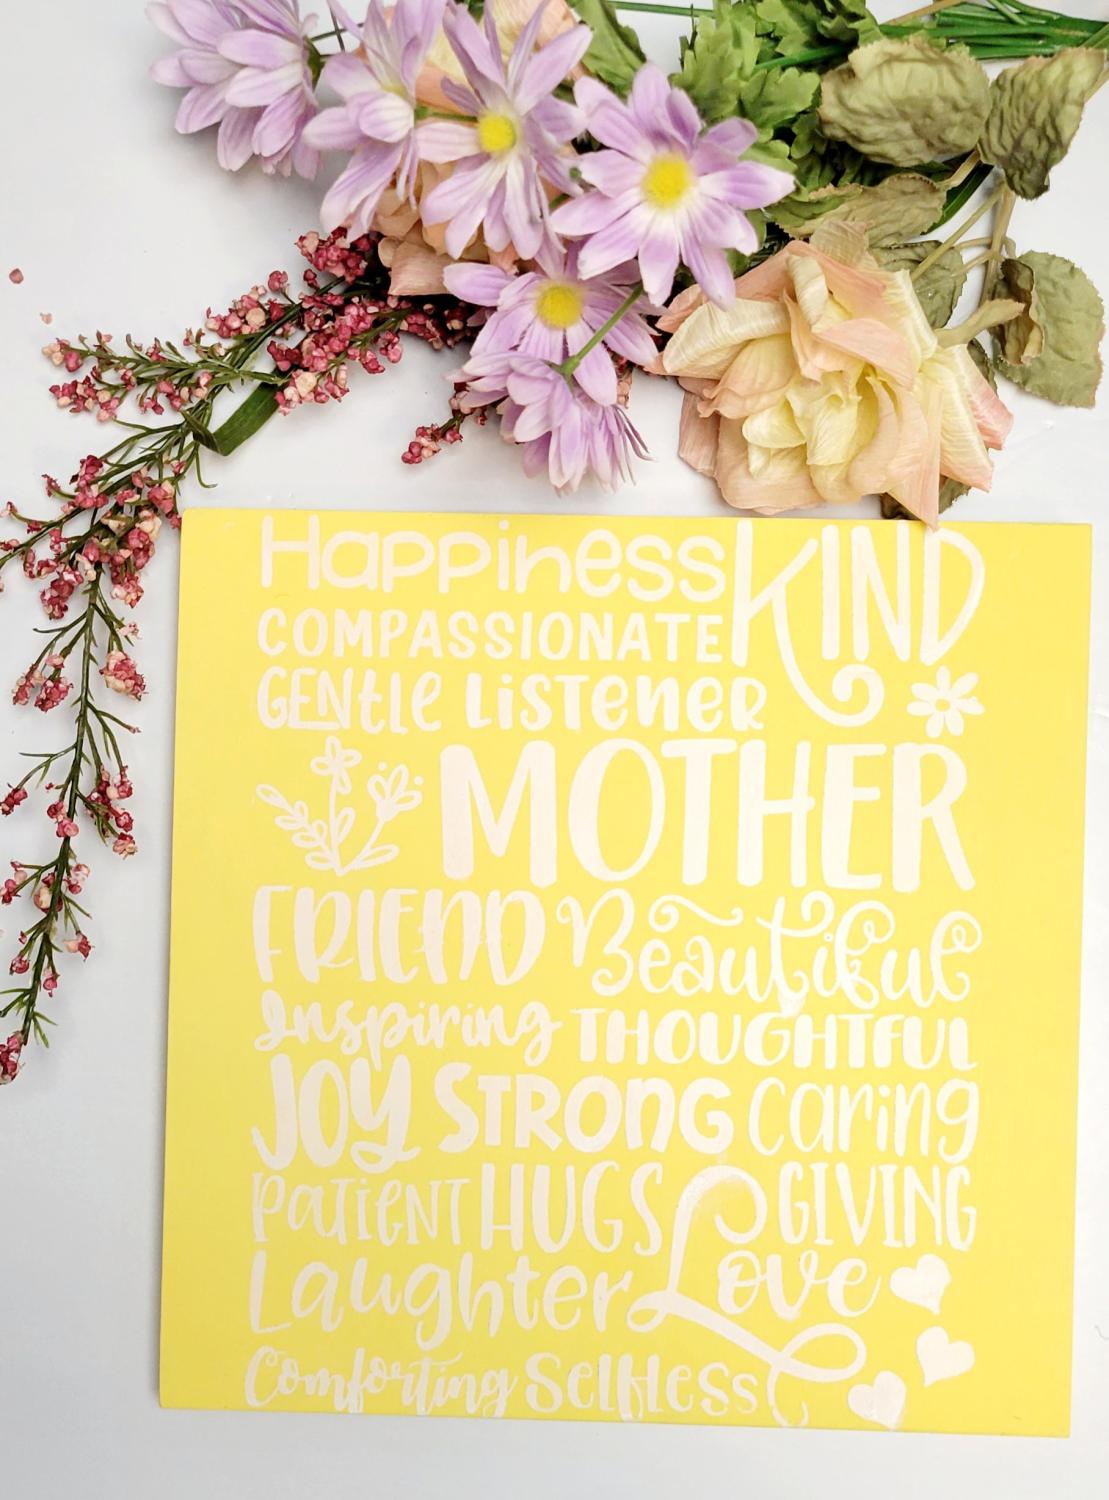 Happiness KIND
COMPASSIONATE
GENtLE LiSTeneR
MOTHER
FRIEND Beautiful
Inspiring THOUGHTFUL
JOY STRONG Caring
PaTiENT HUGS GIVING
Laughter Love
Comforting Selfless